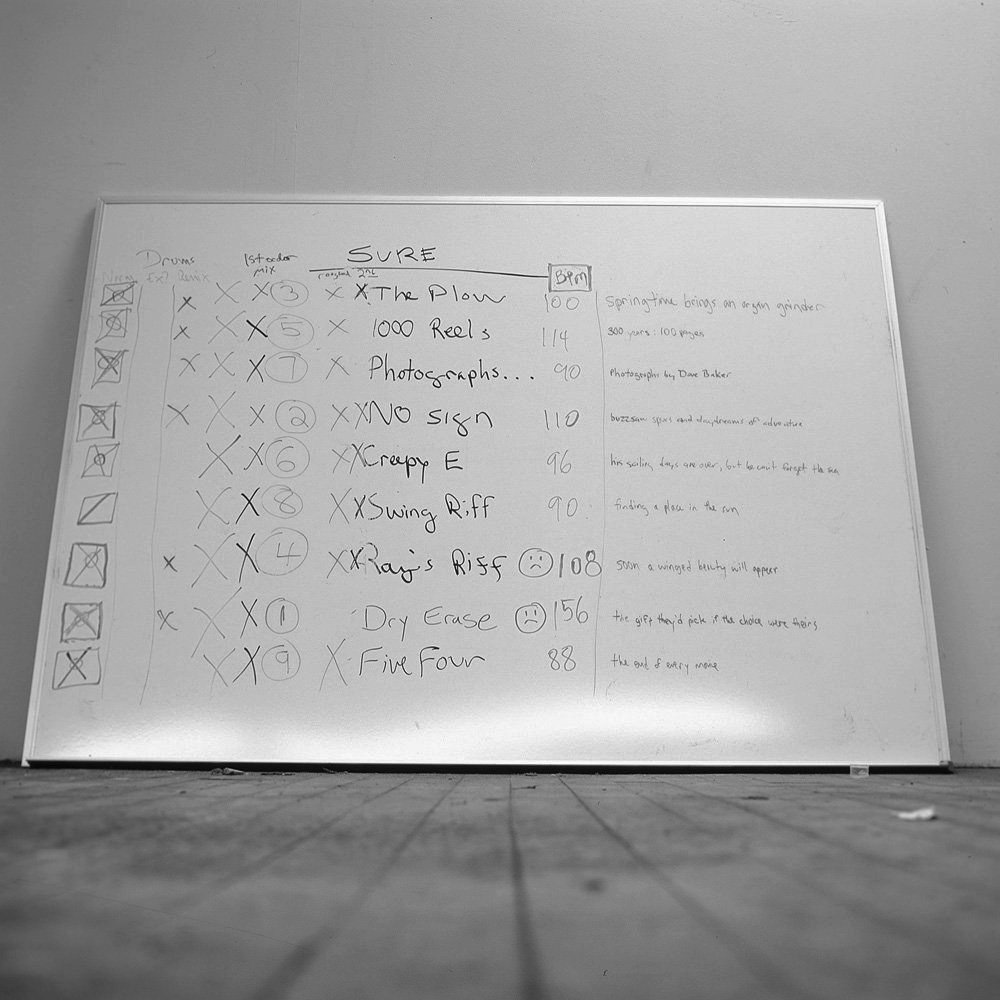 Drums 1st order mix SURE
Norm Ex? Remix rough 2nd BPM
X X X 3 X X The Plow 100 Springtime brings an organ grinder
X X X 5 X 1000 Reels 114 300 years: 100 pages
X X X 7 X Photographs... 90 Photographs by Dave Baker
X X X 2 X X No sign 110 buzzsaw spurs and daydreams of adventure
X X 6 X X Creepy E 96 his sailing days are over, but he can't forget the sea
X X 8 X X Swing Riff 90 finding a place in the sun
X X X 4 X X Ray's Riff 108 soon a winged beauty will appear
X X X 1 Dry Erase 156 the gift they'd pick if the choice were theirs
X X X 9 X Five Four 88 the end of every movie